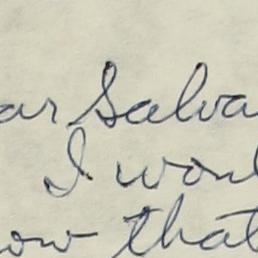 ar Salva
I woul
ow that